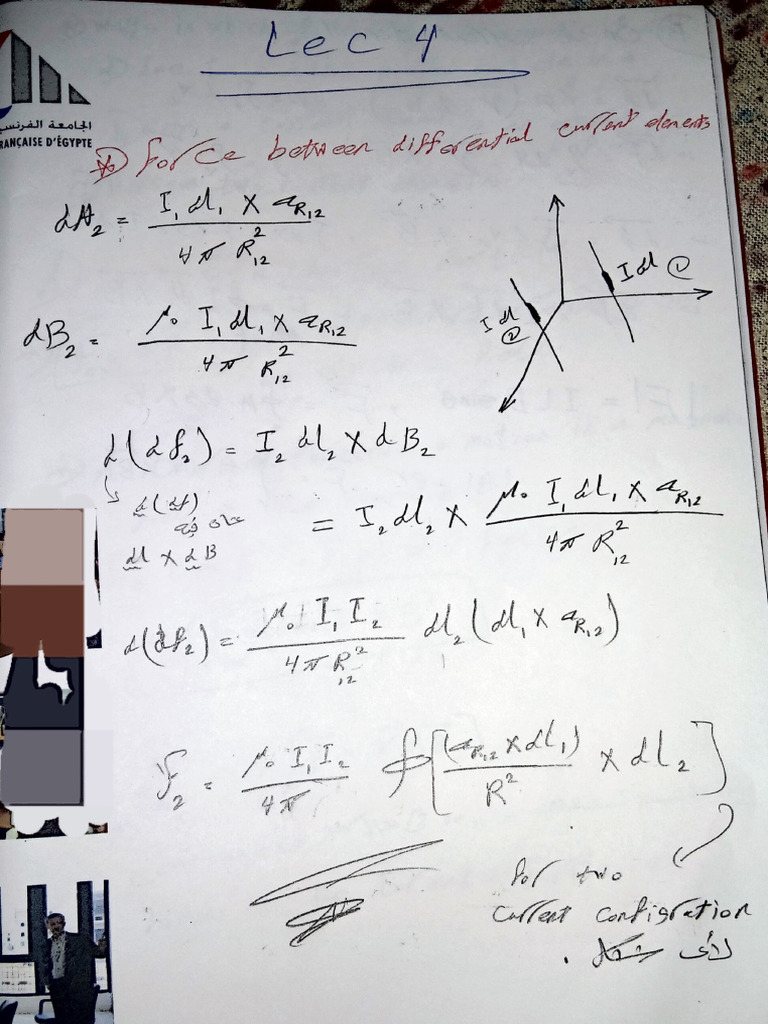 Lec 4
الجامعة الفرنسي
RANÇAISE D'ÉGYPTE
Force between differential current elements
dH₂ = I₁ dl₁ × a_R₁₂ / 4π R₁₂²
I dl ①
I dl ②
dB₂ = μ₀ I₁ dl₁ × a_R₁₂ / 4π R₁₂²
d(df₂) = I₂ dl₂ × dB₂
d(df)
dl × dB
= I₂ dl₂ × μ₀ I₁ dl₁ × a_R₁₂ / 4π R₁₂²
d(df₂) = μ₀ I₁ I₂ / 4π R₁₂² dl₂ (dl₁ × a_R₁₂)
F₂ = μ₀ I₁ I₂ / 4π ∮ [(a_R₁₂ × dl₁) / R² × dl₂]
for two
current configration
لأى شكل .